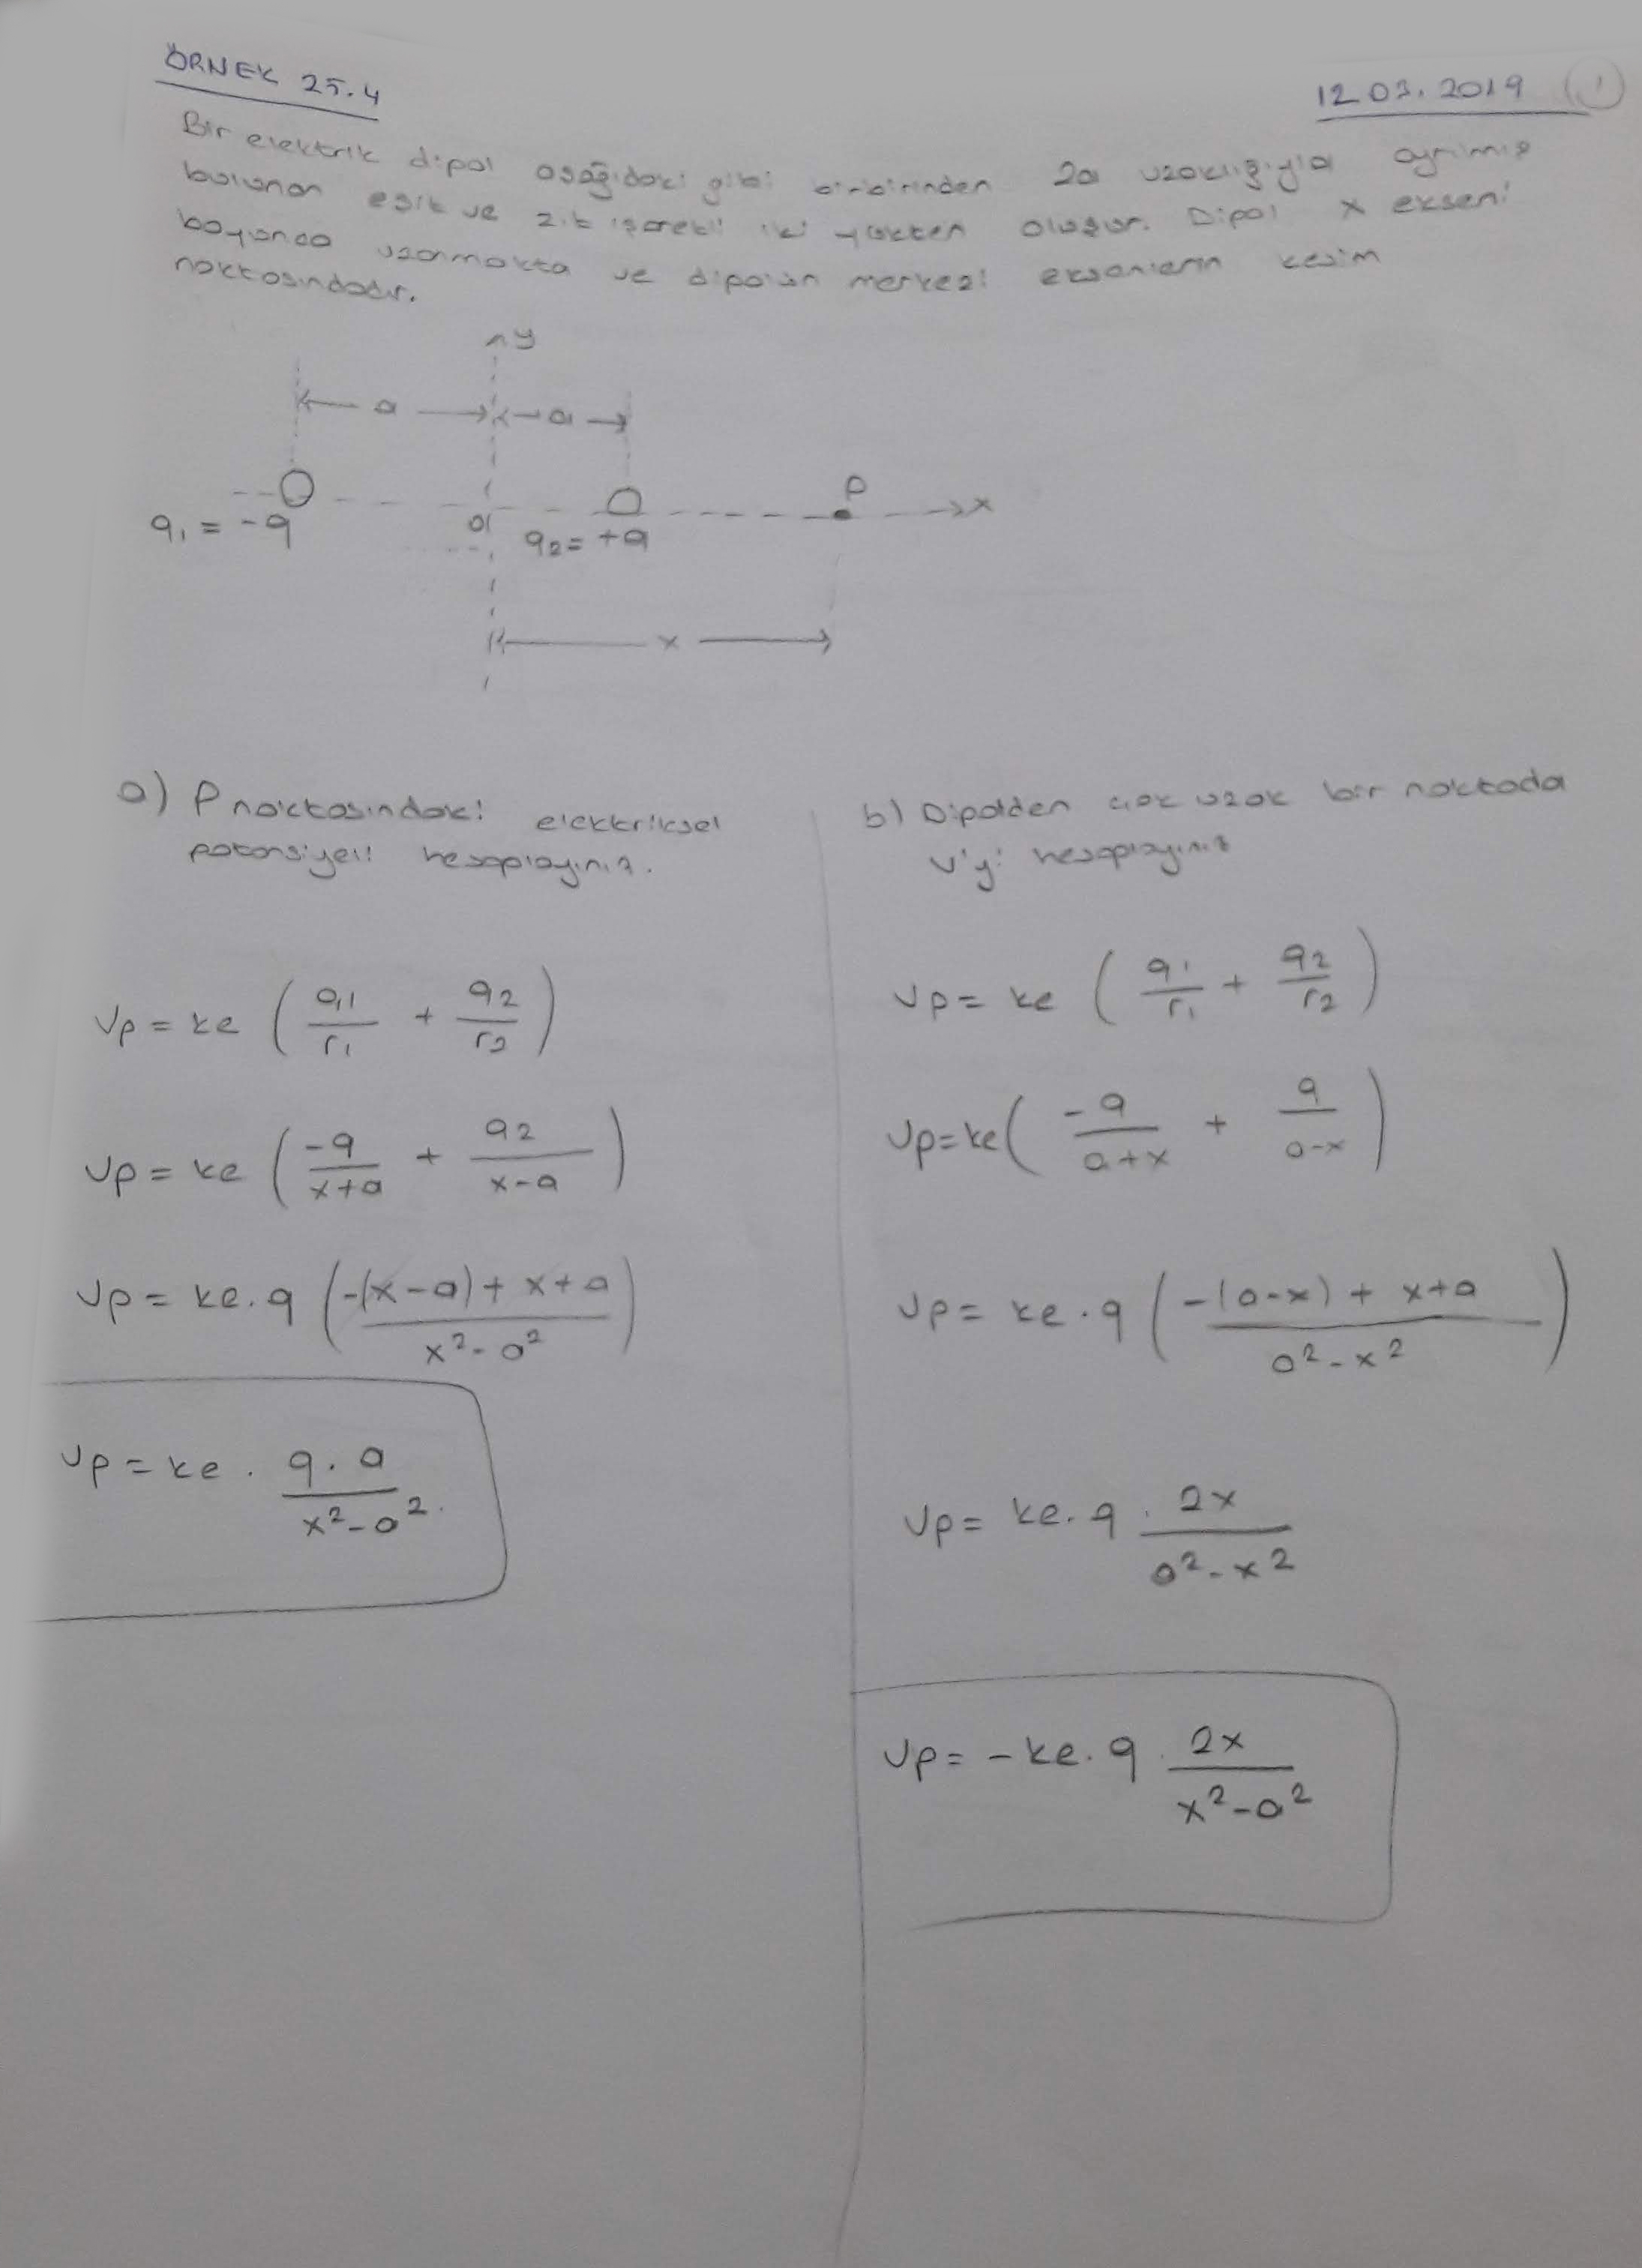 ÖRNEK 25.4
12.03.2019
1
Bir elektrik dipol aşağıdaki gibi birbirinden 2a uzaklığıyla ayrılmış
bulunan eşit ve zıt işaretli iki yükten oluşur. Dipol x ekseni
boyunca uzanmakta ve dipolün merkezi eksenlerin kesim
noktasındadır.
y
a a
P
x
q₁ = -q
0
q₂ = +q
x
a) P noktasındaki elektriksel
potansiyeli hesaplayınız.
Vp = ke ( q₁/r₁ + q₂/r₂ )
Vp = ke ( -q/x+a + q₂/x-a )
Vp = ke.q ( -(x-a) + x+a / x²-a² )
Vp = ke . q.a / x²-a².
b) Dipolden çok uzak bir noktada
V'yi hesaplayınız
Vp = ke ( q₁/r₁ + q₂/r₂ )
Vp = ke ( -q/a+x + q/a-x )
Vp = ke . q ( -(a-x) + x+a / a²-x² )
Vp = ke. q . 2x / a²-x²
Vp = - ke. q . 2x / x²-a²